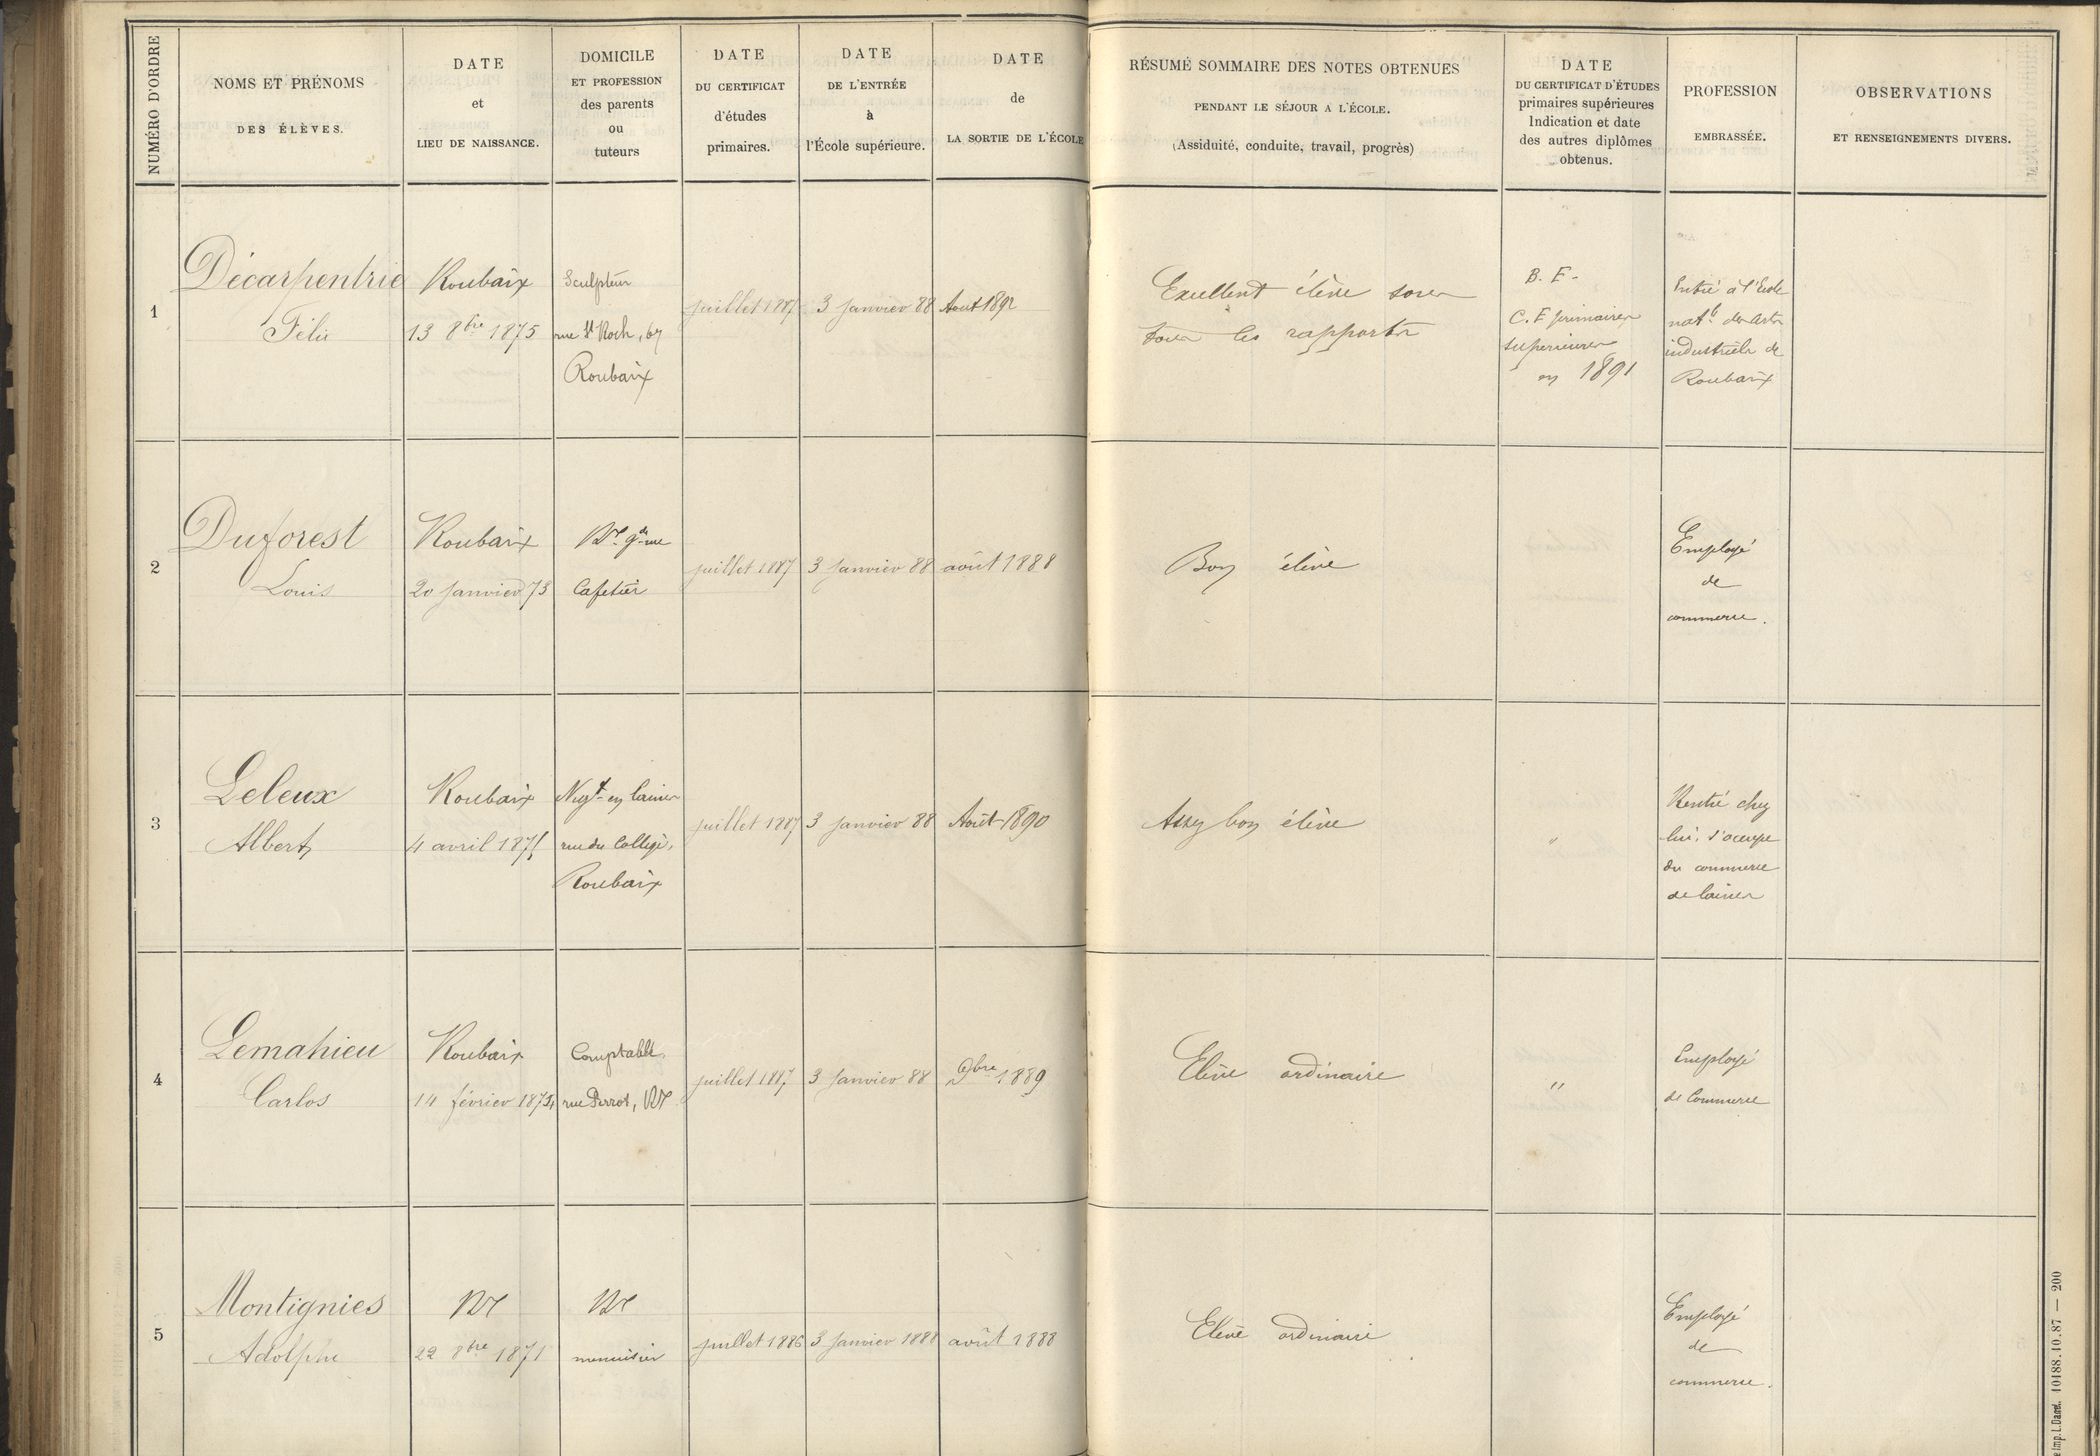 NUMÉRO D'ORDRE
NOMS ET PRÉNOMS
DES ÉLÈVES.
DATE
et
LIEU DE NAISSANCE.
DOMICILE
ET PROFESSION
des parents
ou
tuteurs
DATE
DU CERTIFICAT
d'études
primaires.
DATE
DE L'ENTRÉE
à
l'École supérieure.
DATE
de
LA SORTIE DE L'ÉCOLE
RÉSUMÉ SOMMAIRE DES NOTES OBTENUES
PENDANT LE SÉJOUR A L'ÉCOLE.
(Assiduité, conduite, travail, progrès)
DATE
DU CERTIFICAT D'ÉTUDES
primaires supérieures
Indication et date
des autres diplômes
obtenus.
PROFESSION
EMBRASSÉE.
OBSERVATIONS
ET RENSEIGNEMENTS DIVERS.
1
Décarpentrie
Félix
Roubaix
13 8bre 1875
Sculpteur
rue St Roch, 67
Roubaix
juillet 1887
3 Janvier 88
Aout 1892
Excellent élève sous
tous les rapports
B. E.
C. E primaires
supérieures
en 1891
Entré à l'Ecole
natle des Arts
industriels de
Roubaix
2
Duforest
Louis
Roubaix
20 Janvier 73
Rx gde rue
Cafetier
juillet 1887
3 Janvier 88
août 1888
Bon élève
Employé
de
commerce.
3
Leleux
Albert
Roubaix
4 avril 1875
Negt en laines
rue du Collège,
Roubaix
juillet 1887
3 Janvier 88
Août 1890
Assez bon élève
"
Rentré chez
lui, s'occupe
du commerce
de laines
4
Lemahieu
Carlos
Roubaix
14 février 1874
Comptable,
rue Perrot, Rx
juillet 1887
3 Janvier 88
9bre 1889
Elève ordinaire
"
Employé
de Commerce
5
Montignies
Adolphe
Rx
22 8bre 1871
Rx
menuisier
juillet 1886
3 Janvier 1888
août 1888
Elève ordinaire
Employé
de
commerce.
Imp. L. Danel. 10188.10.87 — 200